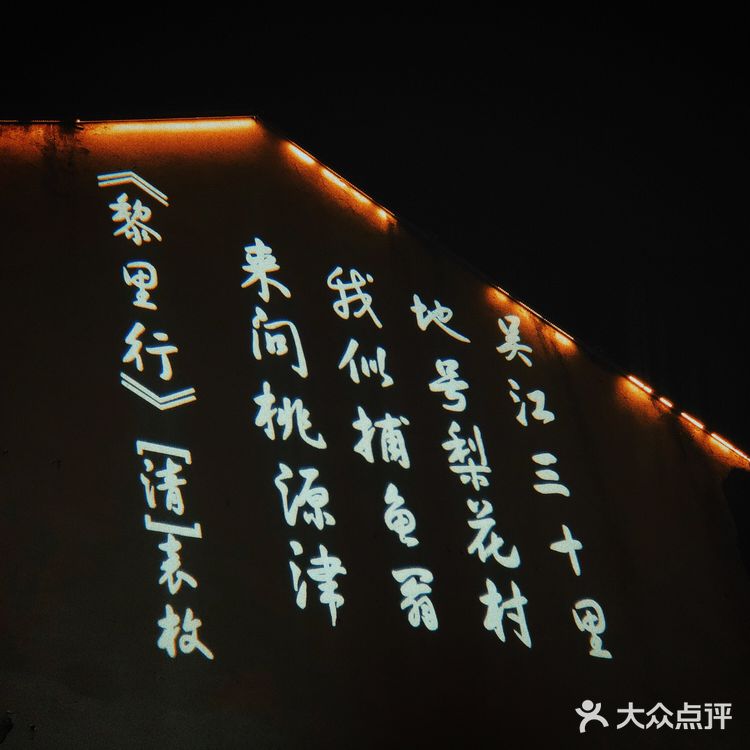 吴江三十里
地号梨花村
我似捕鱼翁
来问桃源津
《黎里行》[清]袁枚
大众点评